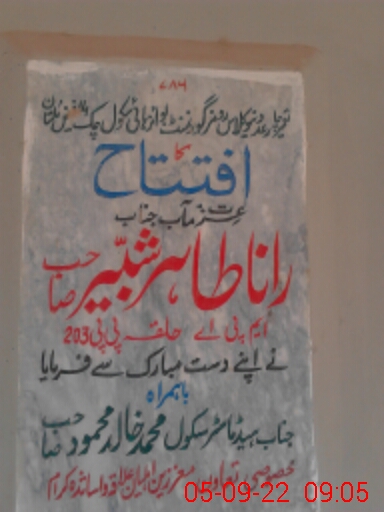 ۷۸۶
تعمیر چار عدد نیو کلاس رومز گورنمنٹ بوائز ہائی سکول چک فیض ملتان
کا
افتتاح
عزت مآب جناب
رانا طاہر شبیر صاحب
ایم پی اے حلقہ پی پی 203
نے اپنے دست مبارک سے فرمایا
باہمراہ
جناب ہیڈماسٹر سکول محمد خالد محمود صاحب
خصوصی تعاون معززین اہلیان علاقہ و اساتذہ کرام
05-09-22 09:05